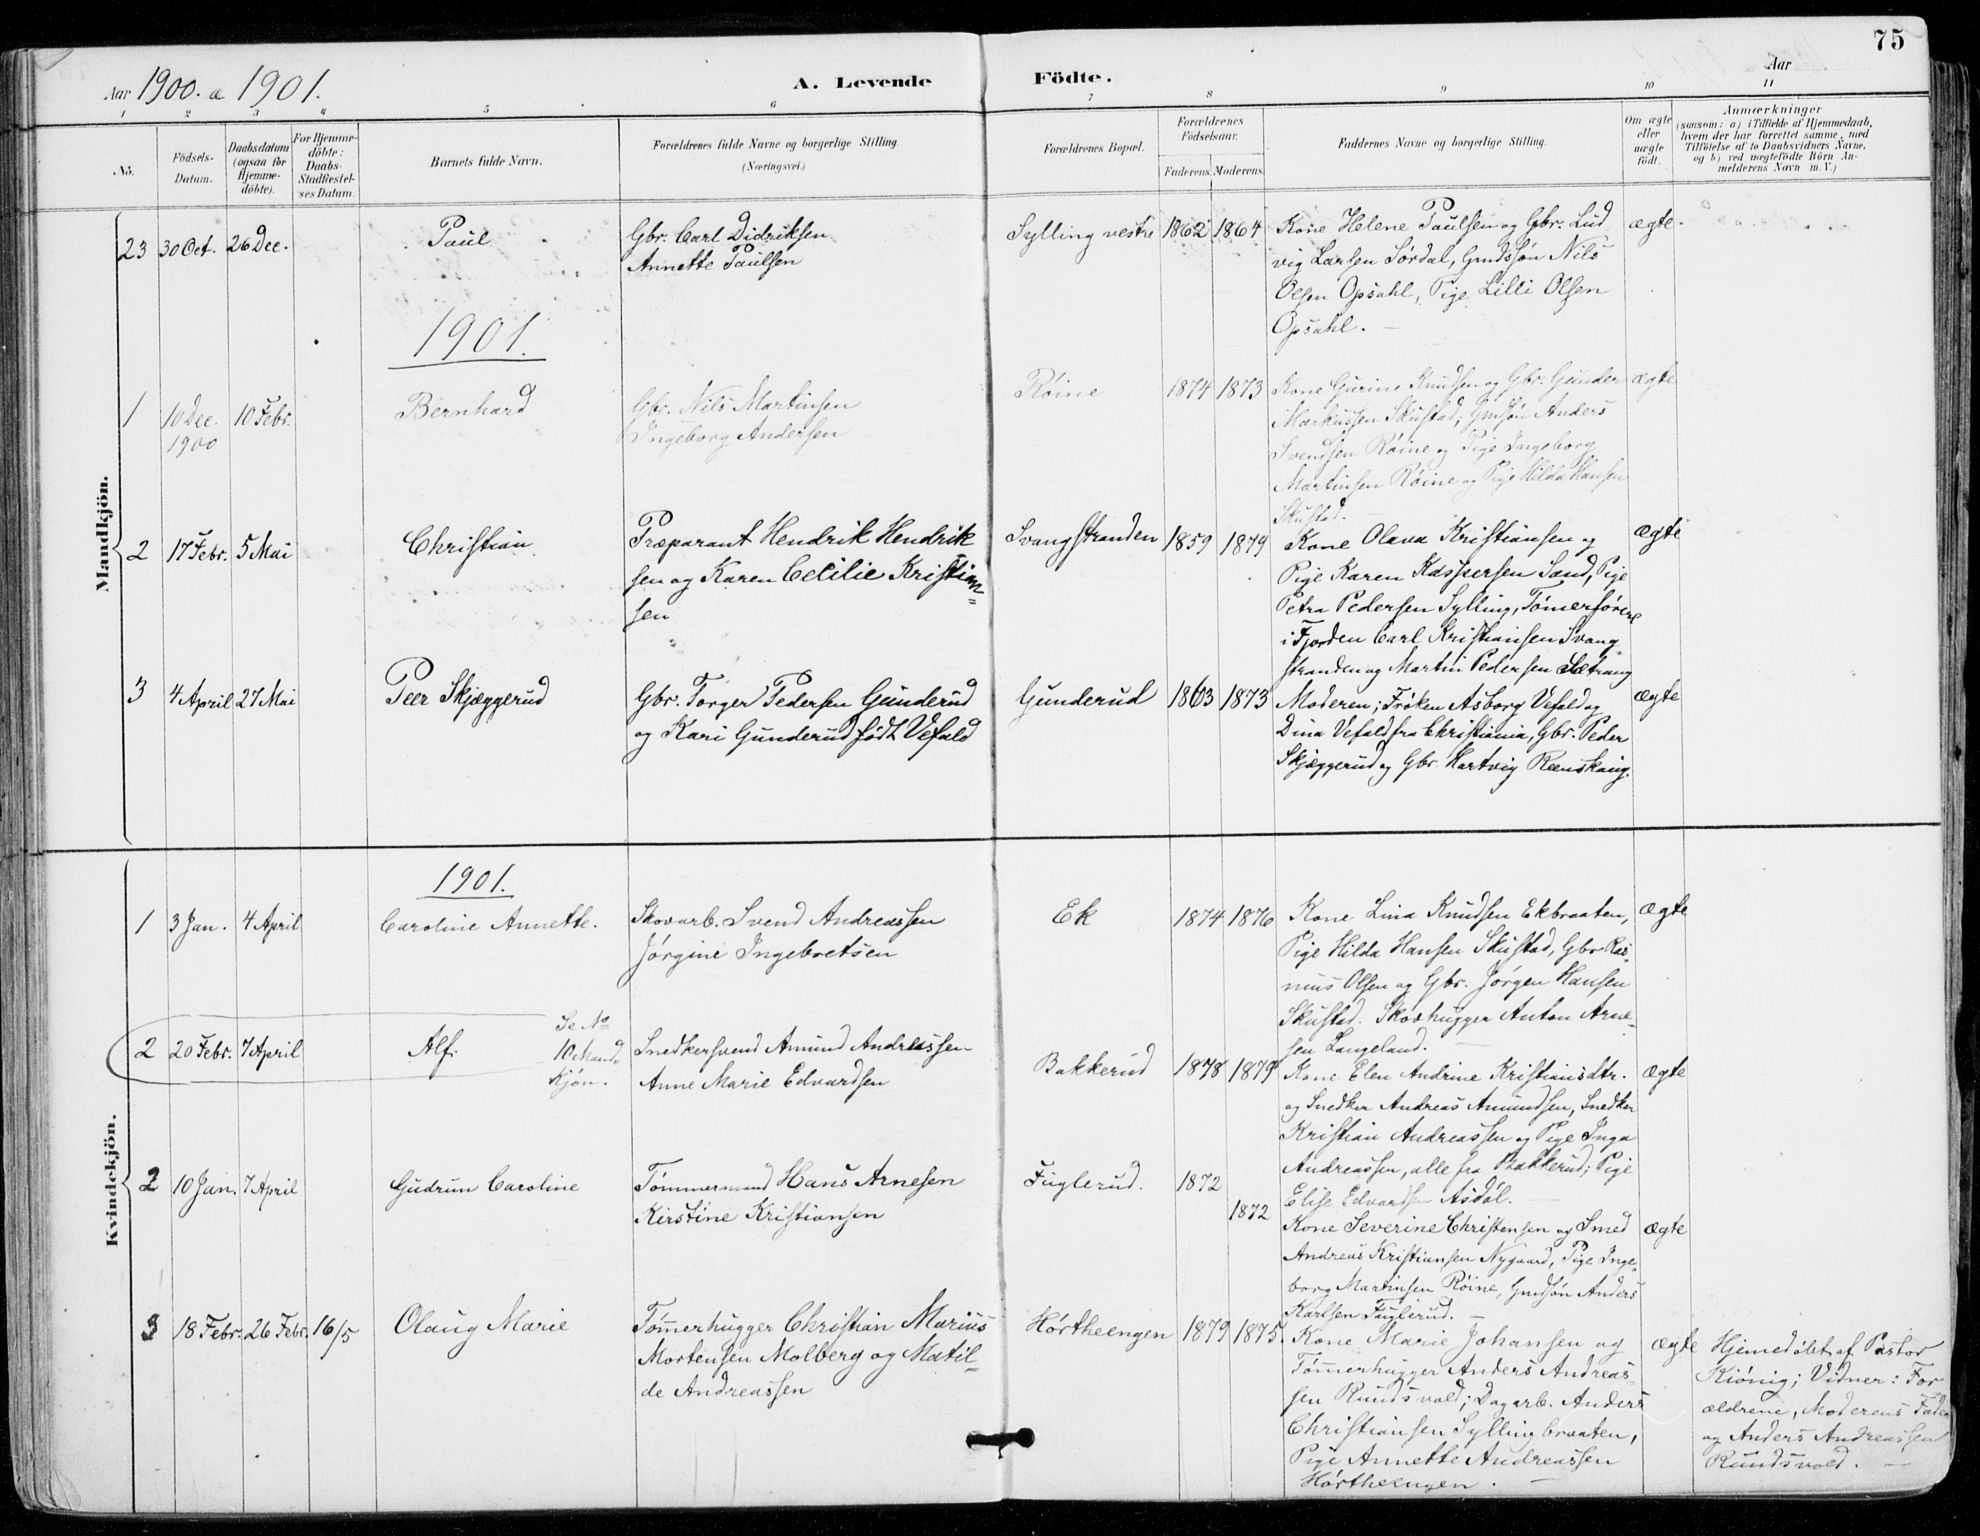 75
Aar 1900. a 1901.
A. Levende Födte.
Aar
1 2 3 4 5 6 7 8 9 10 11
No.
Födsels-
Datum.
Daabsdatum
(ogsaa för
Hjemme-
döbte).
For Hjemme-
döbte:
Daabs-
Stadfæstel-
ses Datum.
Barnets fulde Navn.
Forældrenes fulde Navne og borgerlige Stilling.
(Næringsvei.)
Forældrenes Bopæl.
Forældrenes
Födselsaar.
Faderens. Moderens.
Faddernes Navne og borgerlige Stilling.
Om ægte
eller
uægte
födt.
Anmærkninger
(saasom: a) i Tilfælde af Hjemmedaab,
hvem der har forrettet samme, med
Tilföielse af to Daabsvidners Navne,
og b) ved uægtefödte Börn An-
melderens Navn m. V.)
Mandkjön.
23 30 Oct. 26 Dec.
Paul
Gbr. Carl Didriksen
Annette Paulsen
Sylling vestre 1862 1864
Kone Helene Paulsen og Gbr. Lud
vig Larsen Sørdal, Gmdssøn Nils
Olsen Opsahl, Pige Lilli Olsen
Opsahl.
ægte.
1901.
1 10 Dec. 10 Febr.
1900
Bernhard
Gbr. Nils Martinsen
Ingeborg Andersen
Røine 1874 1873
Kone Gurine Knudsen og Gbr. Gunder
Markussen Skustad; Gmsøn Anders
Svendsen Røine og Pige Ingeborg
Martinsen Røine og Pige Hilda Hansen
Skustad.
ægte
2 17 Febr. 5 Mai
Christian
Præparant Hendrik Hendrik
sen og Karen Cecilie Kristian=
sen
Svangstranden 1859 1879
Kone Olava Kristiansen og
Pige Karen Kaspersen Sand, Pige
Petra Pedersen Sylling, Tømerfører
i Fjorden Carl Kristiansen Svang
stranden og Martin Pedersen Sætrang
ægte
3 4 April 27 Mai
Peer Skjæggerud
Gbr. Torger Pedersen Gunderud
og Kari Gunderud født Vefald
Gunderud 1863 1873
Moderen; Frøken Asborg Vefald og
Dina Vefald fra Christiania, Gbr. Peder
Skjæggerud og Gbr. Hartvig Reenskaug.
ægte
Kvindekjön.
1901.
1 3 Jan. 4 April
Caroline Annette.
Skovarb. Svend Andreassen
Jørgine Ingebretsen
Ek 1874 1876
Kone Lina Knudsen Ekbraaten,
Pige Hilda Hansen Skustad, Gbr Ras-
mus Olsen og Gbr. Jørgen Hansen
Skustad. Skovhugger Anton Arne-
sen Langeland.
ægte
2 20 Febr. 7 April
Alf.
Se No
10 Mand
kjøn.
Snedkersvend Amund Andreassen
Anne Marie Edvardsen
Bakkerud 1878 1879
Kone Elen Andrine Kristiansdtr.
og Snedker Andreas Amundsen, Snedker
Kristian Andreassen og Pige Inga
Andreassen, alle fra Bakkerud; Pige
Elise Edvardsen Asdøl.
ægte
2 10 Jan. 7 April
Gudrun Caroline
Tømmermand Hans Arnesen
Kirstine Kristiansen
Fuglerud. 1872
1872
Kone Severine Christensen og Smed
Andreas Kristiansen Nygaard, Pige Inge-
borg Martinsen Røine, Gmdsøn Anders
Karlsen Fuglerud.
ægte
3 18 Febr. 26 Febr. 16/5
Olaug Marie
Tømerhugger Christian Marius
Mortensen Molberg og Matil=
de Andreassen
Hørtheengen 1879 1875.
Kone Marie Johansen og
Tømerhugger Anders Andreas-
sen Rundsvold; Dagarb. Anders
Christiansen Syllingbraaten,
Pige Annette Andreassen
Hørtheengen.
ægte
Hjemedøbt af Pastor
Kiønig; Vidner: For
ældrene, Moderens Fader
og Anders Andreassen
Rundsvold.